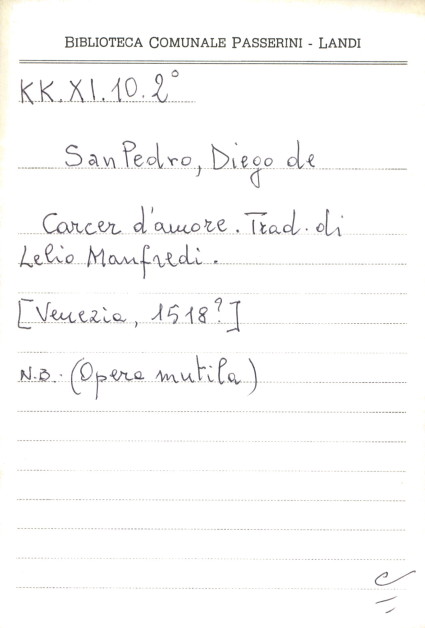 BIBLIOTECA COMUNALE PASSERINI - LANDI
KK.XI.10.2°
San Pedro, Diego de
Carcer d'amore. Trad. di
Lelio Manfredi.
[Venezia, 1518?]
N.B. (Opera mutila)